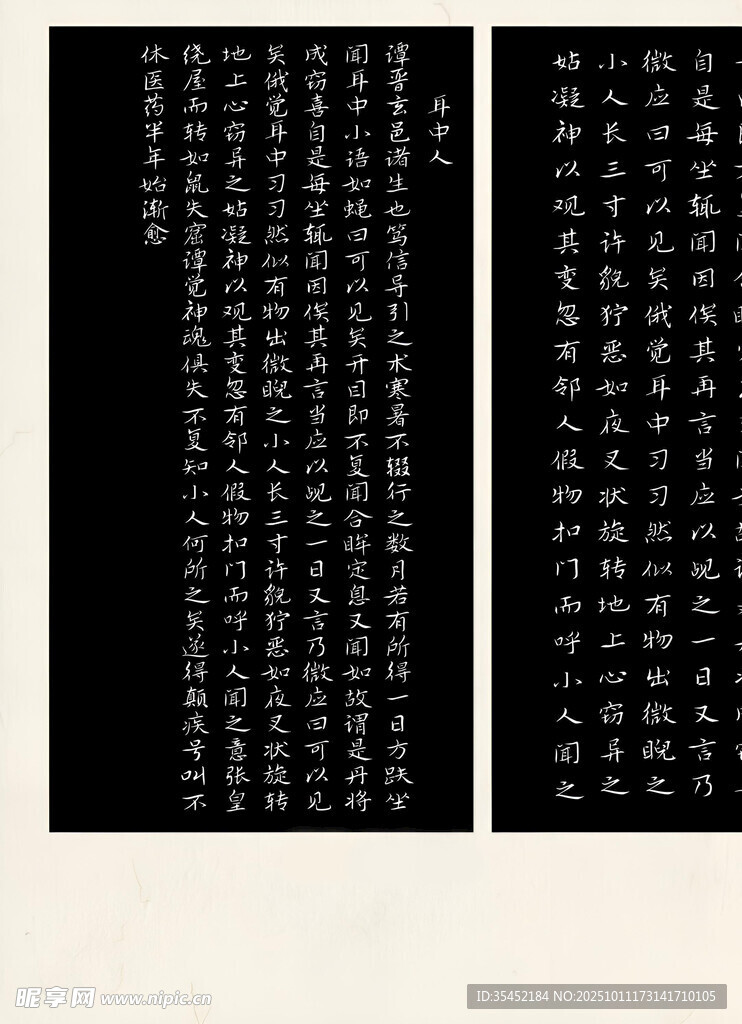 耳中人
谭晋玄邑诸生也笃信导引之术寒暑不辍行之数月若有所得一日方趺坐
闻耳中小语如蝇曰可以见矣开目即不复闻合眸定息又闻如故谓是丹将
成窃喜自是每坐辄闻因俟其再言当应以觇之一日又言乃微应曰可以见
矣俄觉耳中习习然似有物出微睨之小人长三寸许貌狞恶如夜叉状旋转
地上心窃异之姑凝神以观其变忽有邻人假物扣门而呼小人闻之意张皇
绕屋而转如鼠失窟谭觉神魂俱失不复知小人何所之矣遂得颠疾号叫不
休医药半年始渐愈
自是每坐辄闻因俟其再言当应以觇之一日又言乃
微应曰可以见矣俄觉耳中习习然似有物出微睨之
小人长三寸许貌狞恶如夜叉状旋转地上心窃异之
姑凝神以观其变忽有邻人假物扣门而呼小人闻之
昵享网 www.nipic.cn
ID:35452184 NO:20251011173141710105